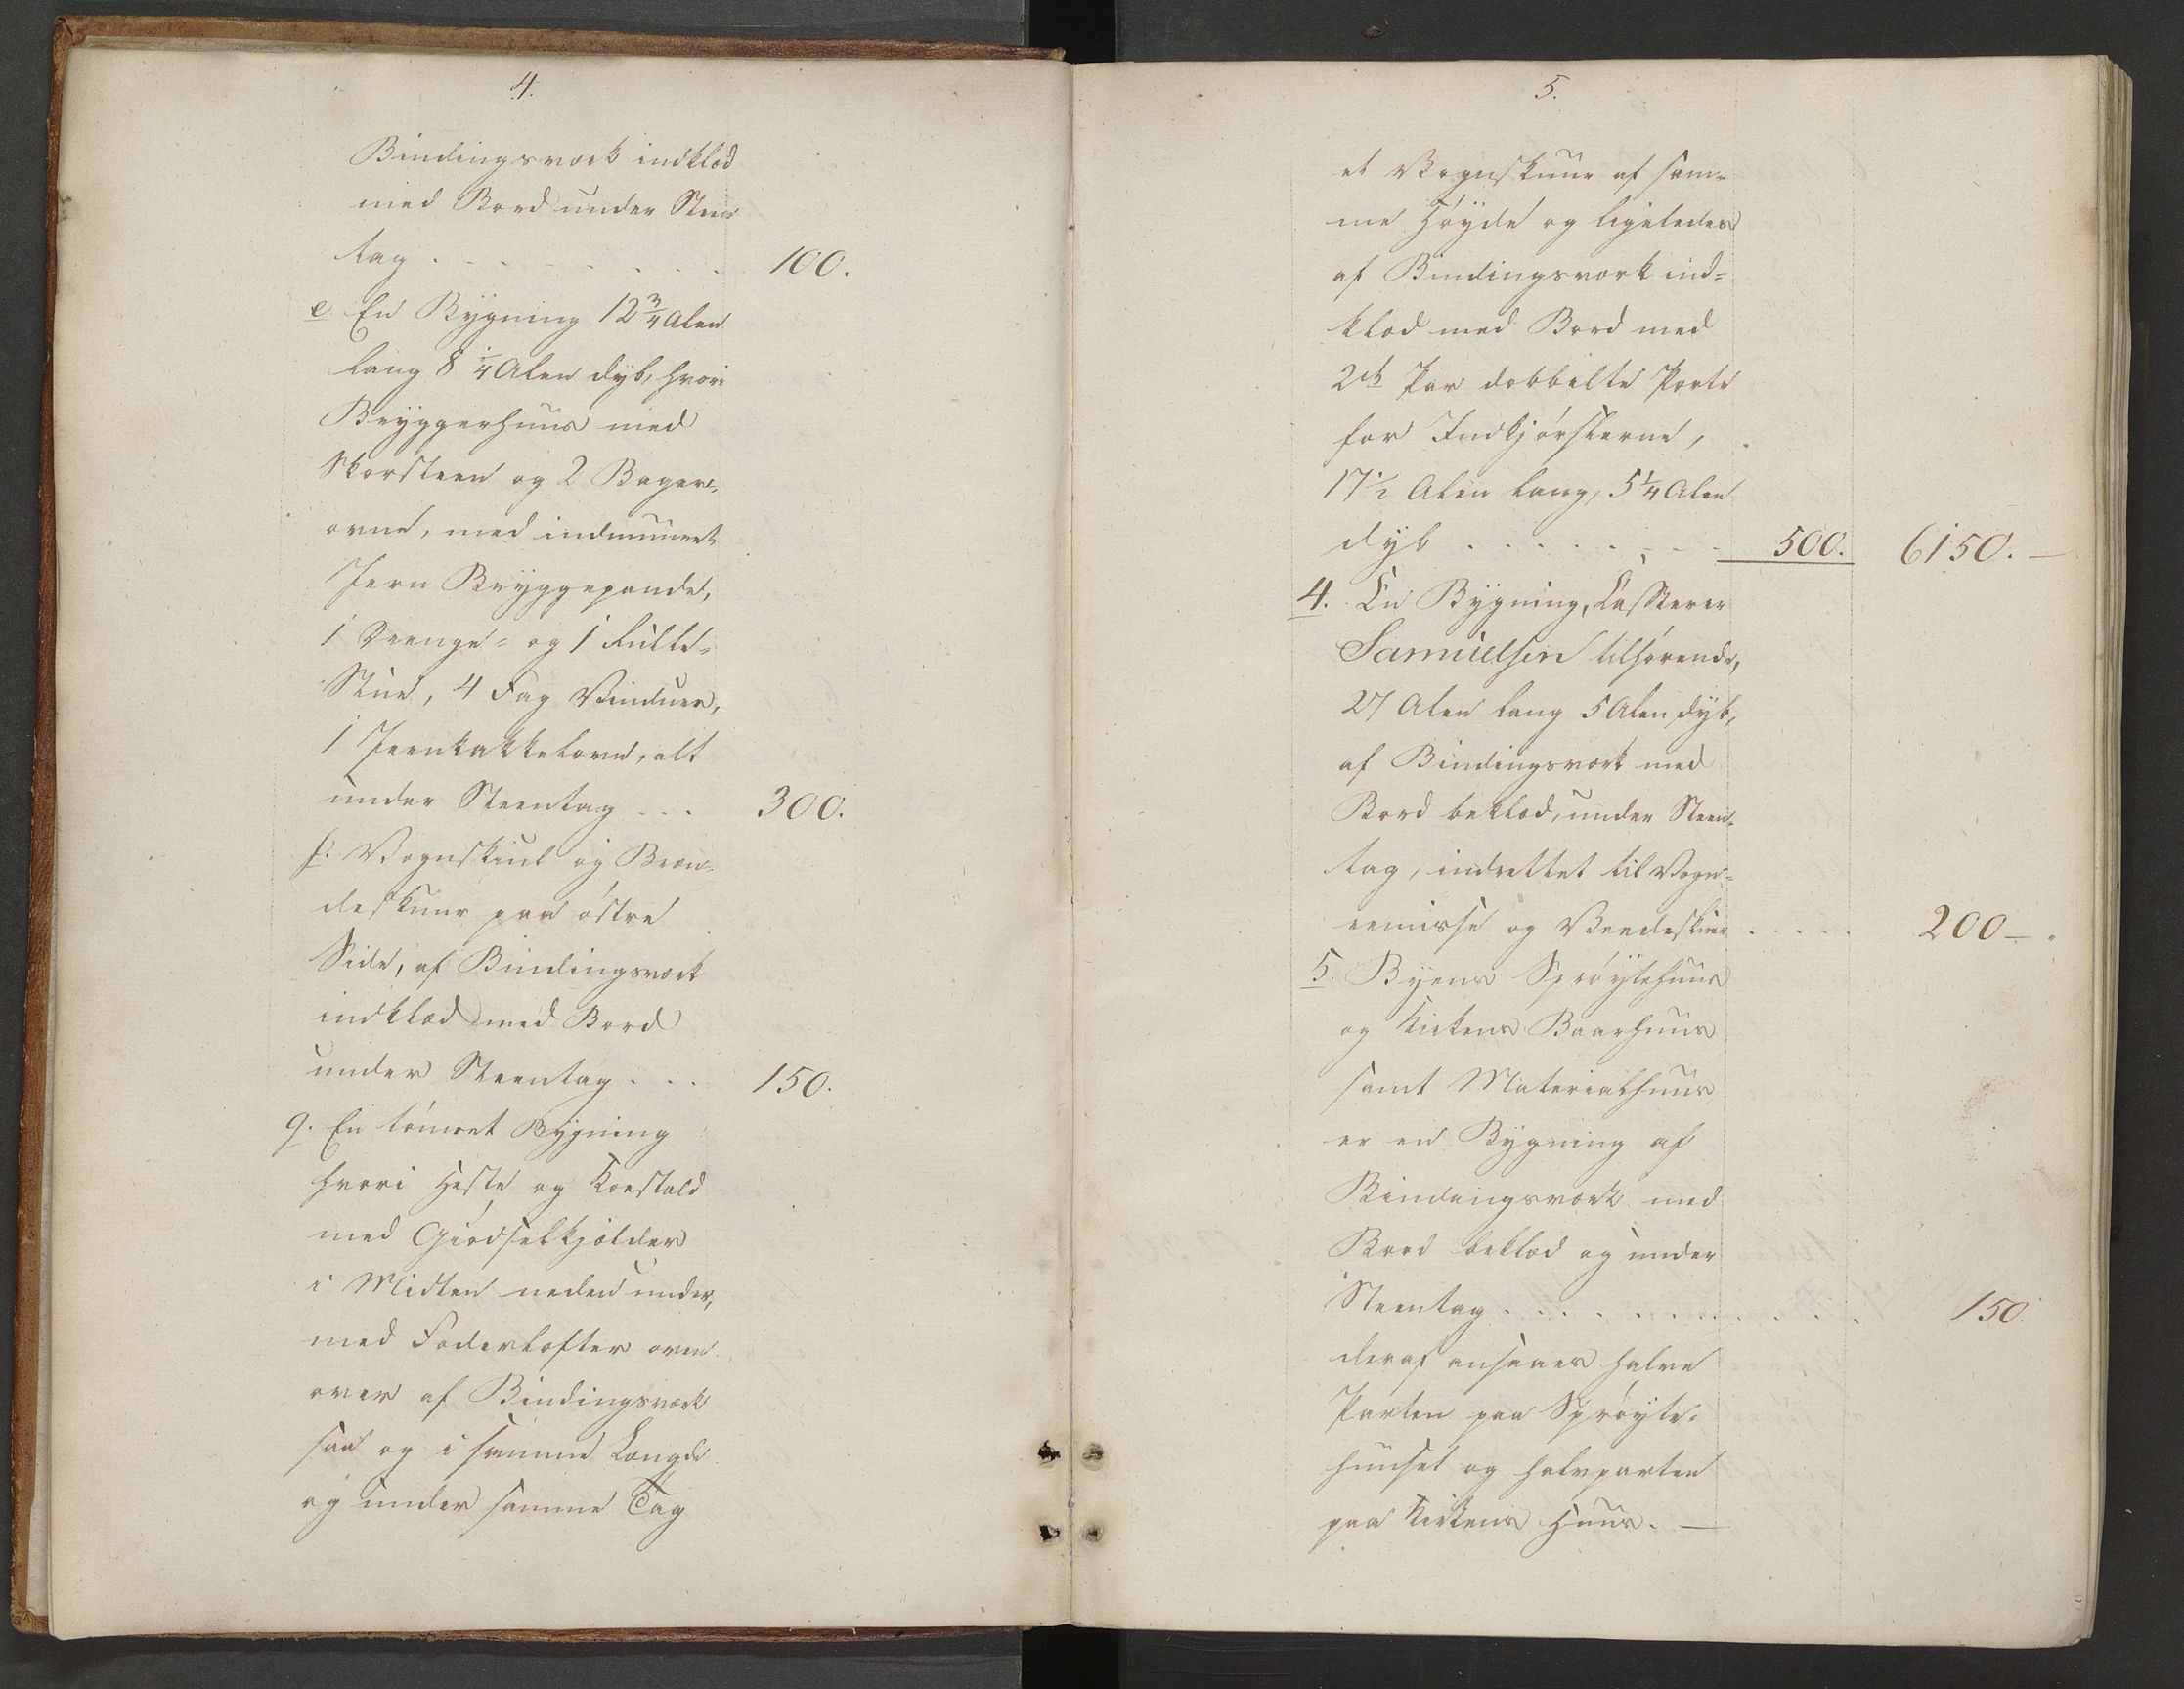 4.
Bindingsværk indklæd
med Bord under Steen
tag . . . . . . . . 100.
e. En Bygning 12 3/4 Alen
lang 8 1/4 Alen dyb, hvori
Bryggerhuus med
Skorsteen og 2 Bager-
ovne, med indmuuret
Jern Bryggepande,
1 Drenge- og 1 Rulle-
Stue, 4 Fag Vinduer,
1 Jernkakkelovn, alt
under Steentag . . . 300.
f. Vognskiul og Bræn-
deskuur paa østre
Side, af Bindingsværk
indklæd med Bord
under Steentag . . . 150.
g. En tømret Bygning
hvori Heste og Kostald
med Giødselkjælder
i Midten neden under,
med Foderlofter oven
over af Bindingsværk
saa og i samme Længde
og under samme Tag
5.
et Vognskuur af sam-
me Høyde og ligeledes
af Bindingsværk ind-
klæd med Bord med
2de Par dobbelte Porte
for Indkjørslerne,
17 1/2 Alen lang, 5 1/4 Alen
dyb . . . . . . . . 500. 6150. —
4. En Bygning, Casserer
Samuelsen tilhørende,
27 Alen lang 5 Alen dyb,
af Bindingsværk med
Bord beklæd, under Steen-
tag, indrettet til Vogn-
remisse og Vedeskuur . . . . . 200 — .
5. Byens Sprøytehuus
og Kirkens Baarhuus
samt Materialhuus
er en Bygning af
Bindingsværk med
Bord beklæd og under
Steentag . . . . . . . . . . . . 150.
deraf ansees halve
Parten paa Sprøyte-
huuset og halvparten
paa Kirkens Huus. —